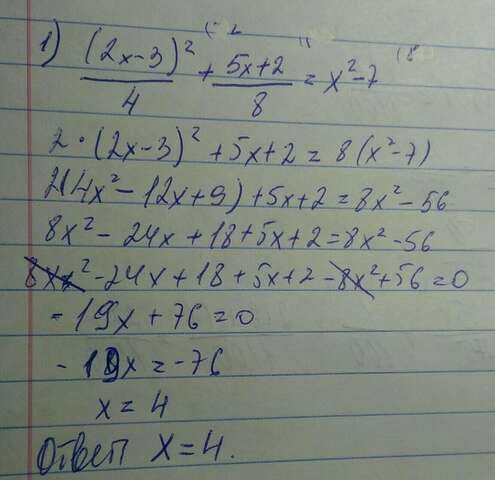 1) (2x-3)²/4 + 5x+2/8 = x²-7
2·(2x-3)²+5x+2=8(x²-7)
2(4x²-12x+9)+5x+2=8x²-56
8x²-24x+18+5x+2=8x²-56
8x²-24x+18+5x+2-8x²+56=0
-19x+76=0
-19x=-76
x=4
Ответ x=4.